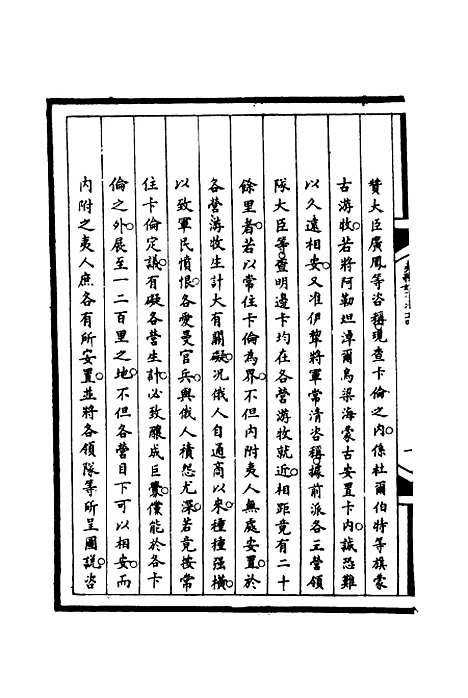 贊大臣廣鳳等咨稱現查卡倫之內係杜爾伯特等旗蒙
古游牧若將阿勒坦淖爾烏梁海蒙古安置卡內誠恐難
以久遠相安又准伊犂將軍常清咨稱據前派各王營領
隊大臣等查明邊卡均在各營游牧就近相距竟有二十
餘里者若以常住卡倫為界不但內附夷人無處安置於
各營游牧生計大有關礙況俄人自通商以來種種强橫
以致軍民憤恨各愛曼官兵與俄人積怨尤深若竟按常
住卡倫定議有礙各營生計必致釀成巨釁儻能於各卡
倫之外展至一二百里之地不但各營目下可以相安而
內附之夷人庶各有所安置並將各領隊等所呈圖說咨